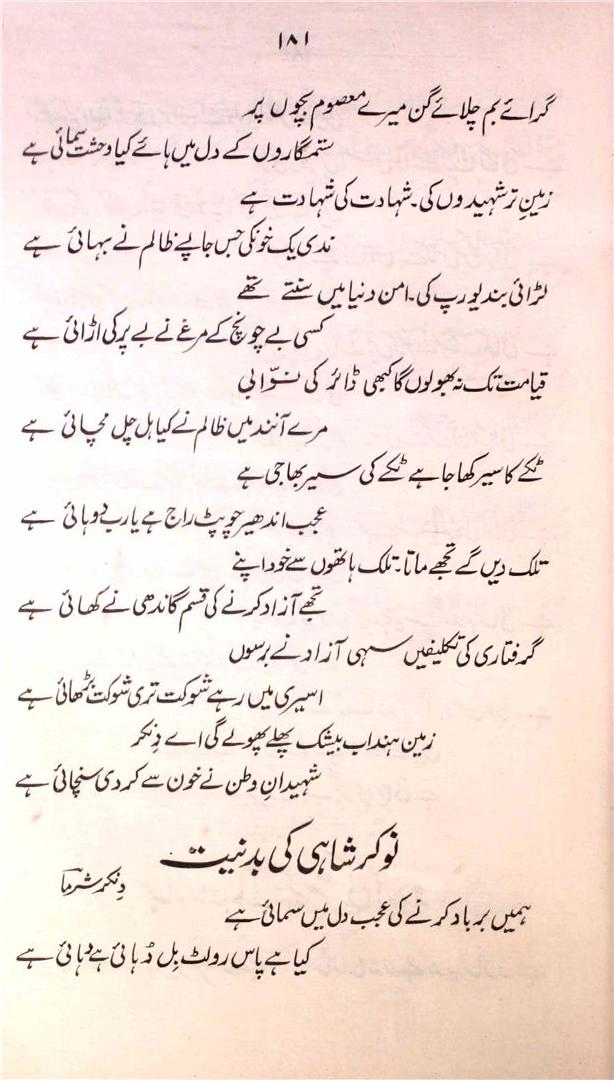 ۱۸۱
گرائے بم چلائے گن میرے معصوم بچوں پر
ستمگاروں کے دل میں ہائے کیا وحشت سمائی ہے
زمینِ تر شہیدوں کی۔ شہادت کی شہادت ہے
ندی یک خونکی جس جا پے ظالم نے بہائی ہے
لڑائی بند یورپ کی۔ امن دنیا میں سنتے تھے
کسی بے چونچ کے مرغے نے بے پر کی اڑائی ہے
قیامت تک نہ بھولوں گا کبھی ڈائر کی نوّابی
مرے آنند میں ظالم نے کیا ہل چل مچائی ہے
ٹکے کا سیر کھاجا ہے ٹکے کی سیر بھاجی ہے
عجب اندھیر چوپٹ راج ہے یارب دوہائی ہے
تلک دیں گے تجھے ماتا۔ تلک ہاتھوں سے خود اپنے
تجھے آزاد کرنے کی قسم گاندھی نے کھائی ہے
گرفتاری کی تکلیفیں سہی آزاد نے برسوں
اسیری میں رہے شوکت تری شوکت بڑھائی ہے
زمین ہند اب بیشک پھلے پھولے گی اے دِنکر
شہیدانِ وطن نے خون سے کر دی سنچائی ہے
نوکر شاہی کی بدنیت
دِنکر شرما
ہمیں برباد کرنے کی عجب دل میں سمائی ہے
کیا ہے پاس رولٹ بِل دُہائی ہے دہائی ہے